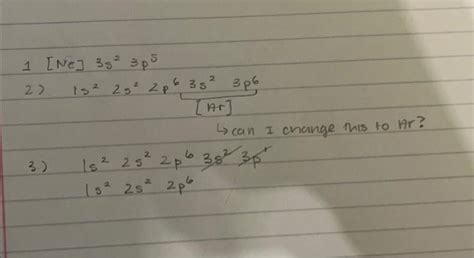 1 [Ne] 3s² 3p⁵
2) 1s² 2s² 2p⁶ 3s² 3p⁶
[Ar]
↳ can I change this to Ar?
3) 1s² 2s² 2p⁶ 3s² 3p¹
1s² 2s² 2p⁶